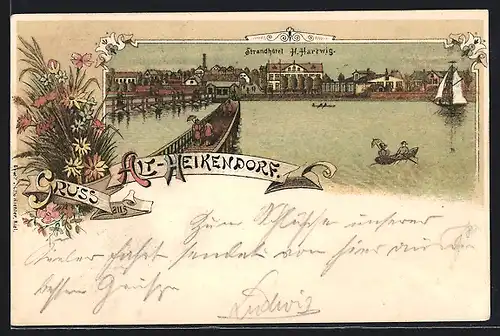 Strandhôtel H. Hartwig.
GRUSS aus ALT-HEIKENDORF.
Zum Schlusse unserer
Kieler Fahrt sendet von hier die
besten Grüsse
Ludwig